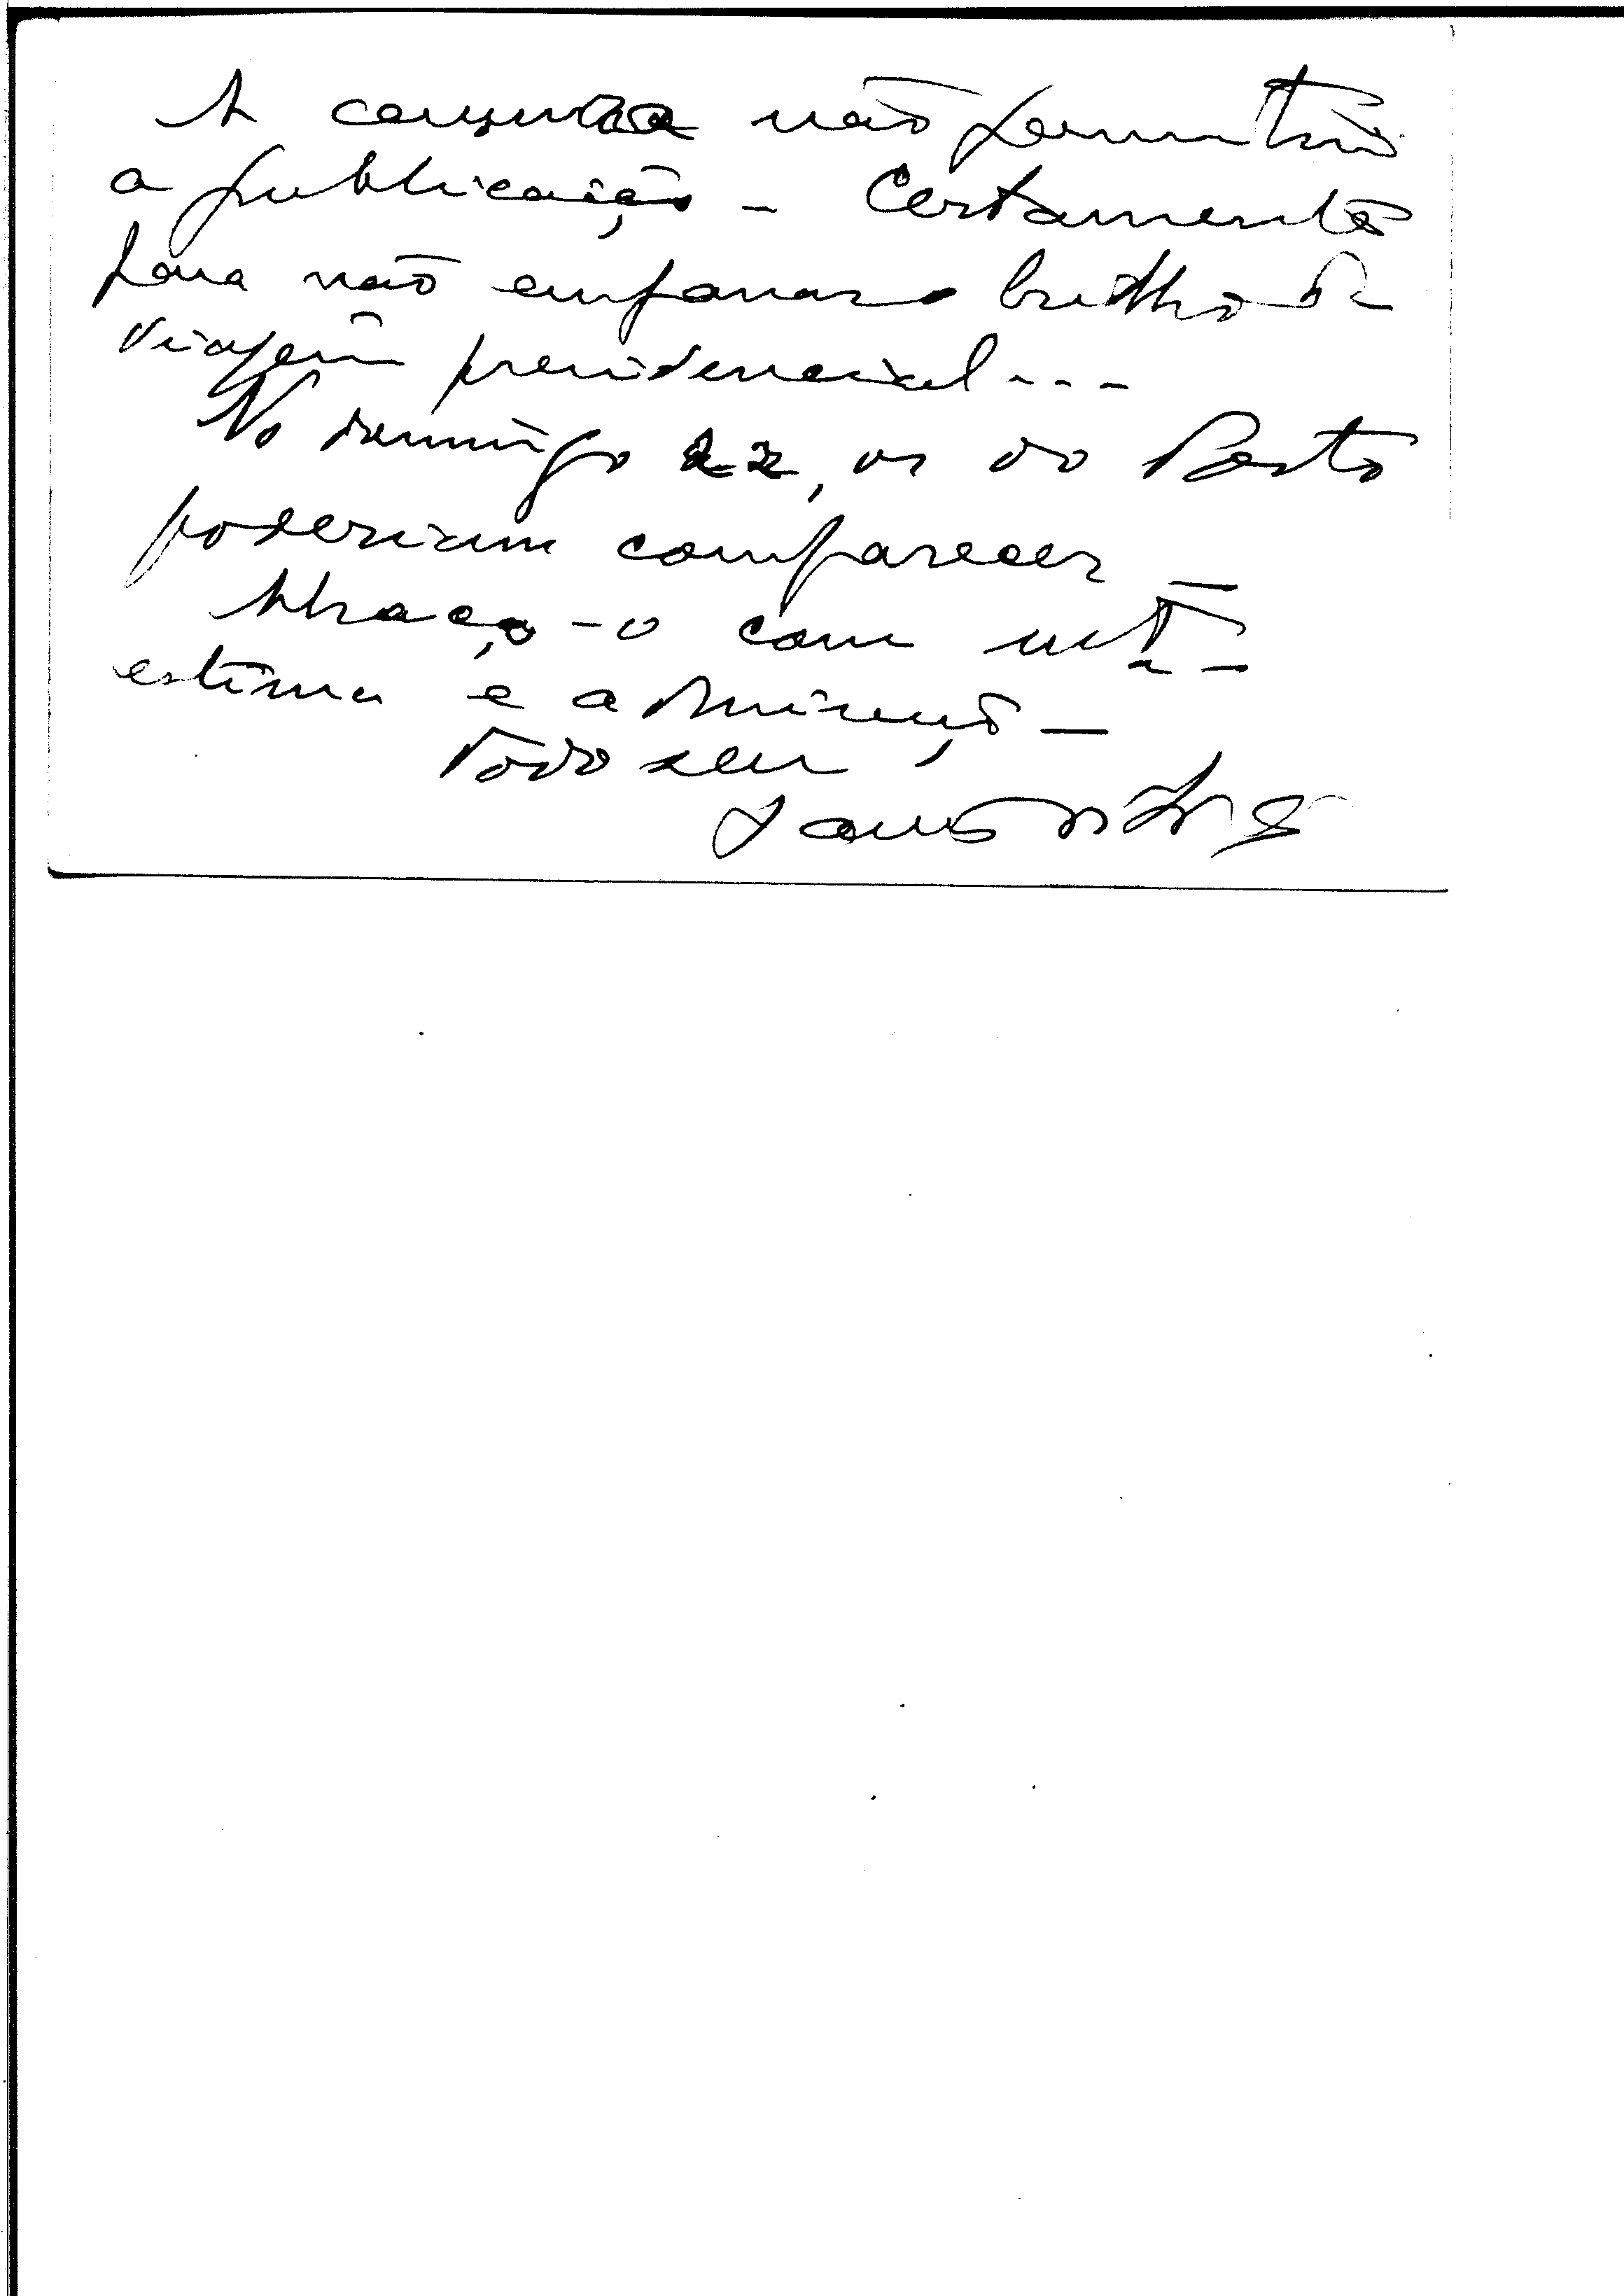 A censura não permitiu
a publicação - Certamente
para não empanar o brilho da
viagem presidencial...
No domingo 22, os do Porto
poderiam comparecer -
Abraço-o com mta
estima e admiração -
Todo seu